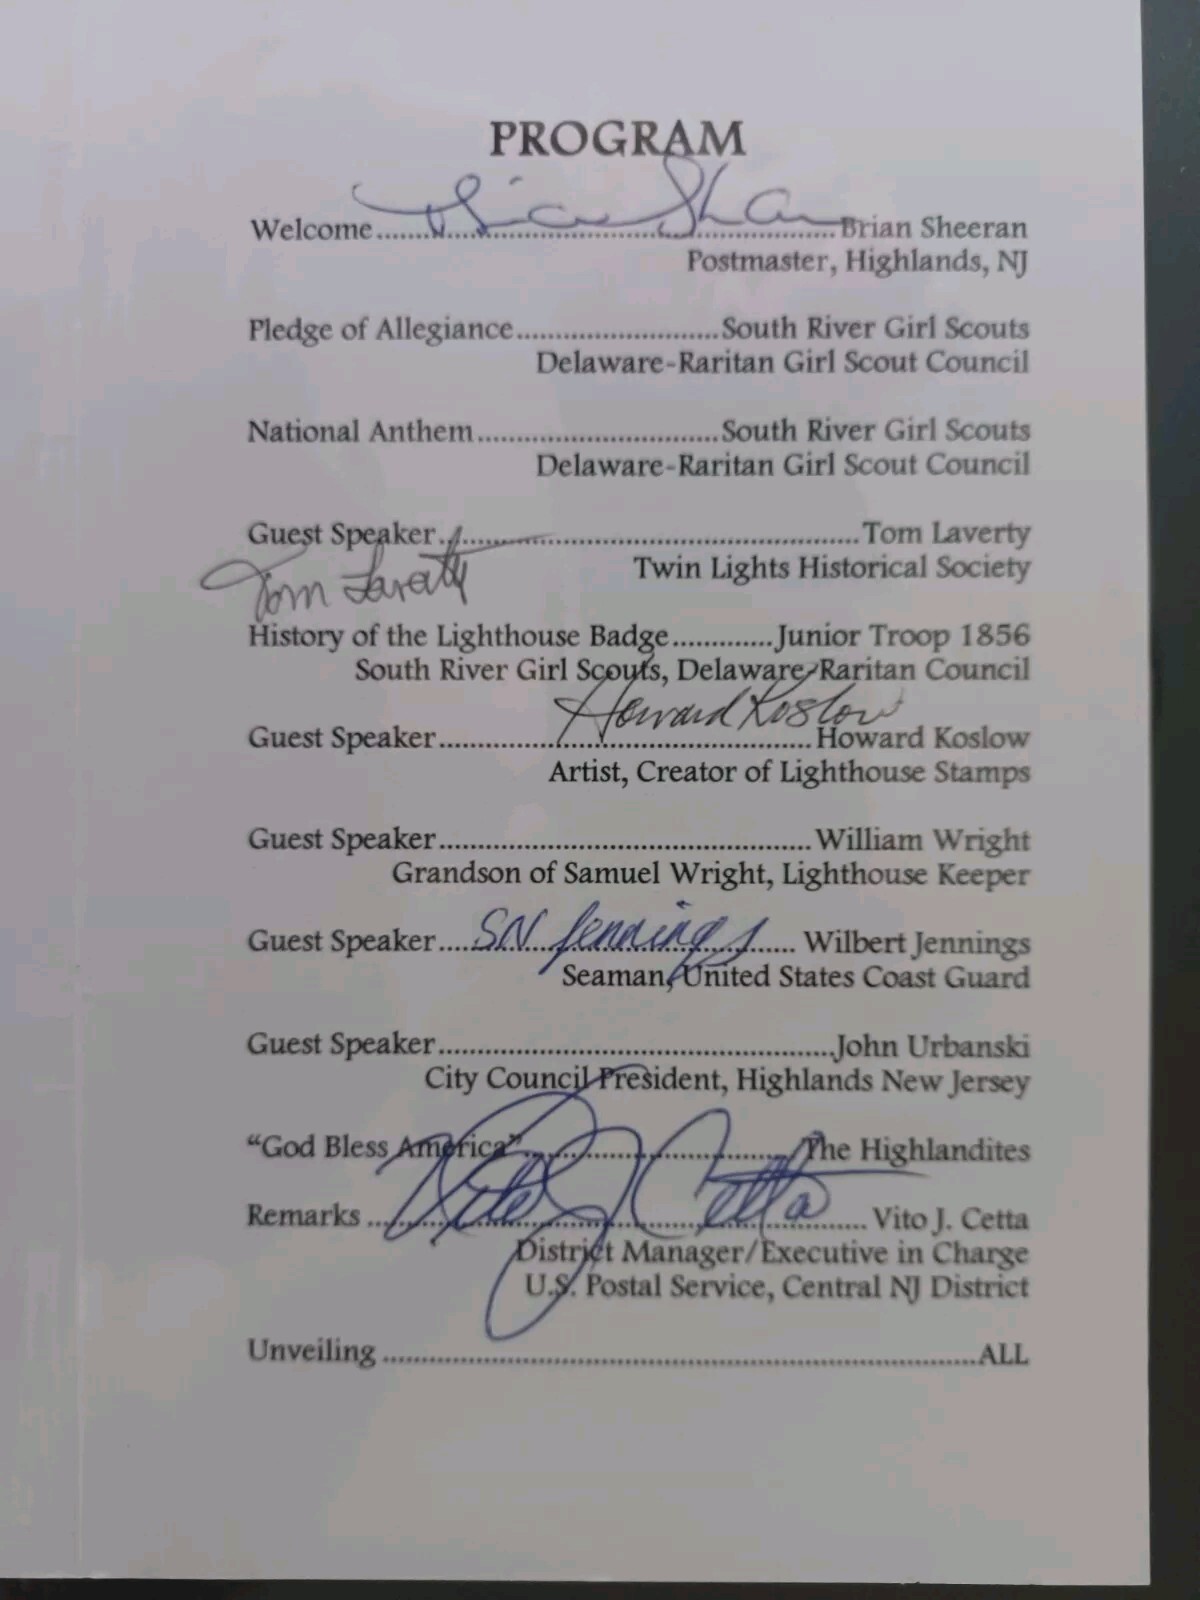 PROGRAM
Brian Sheeran
Welcome..........................................................Brian Sheeran
Postmaster, Highlands, NJ
Pledge of Allegiance.........................South River Girl Scouts
Delaware-Raritan Girl Scout Council
National Anthem..............................South River Girl Scouts
Delaware-Raritan Girl Scout Council
Guest Speaker....................................................Tom Laverty
Twin Lights Historical Society
Tom Laverty
History of the Lighthouse Badge.............Junior Troop 1856
South River Girl Scouts, Delaware-Raritan Council
Howard Koslow
Guest Speaker..............................................Howard Koslow
Artist, Creator of Lighthouse Stamps
Guest Speaker..............................................William Wright
Grandson of Samuel Wright, Lighthouse Keeper
SN Jennings
Guest Speaker............................................ Wilbert Jennings
Seaman, United States Coast Guard
Guest Speaker.................................................John Urbanski
City Council President, Highlands New Jersey
“God Bless America”..................................The Highlandites
Vito J Cetta
Remarks .............................................................. Vito J. Cetta
District Manager/Executive in Charge
U.S. Postal Service, Central NJ District
Unveiling ..........................................................................ALL